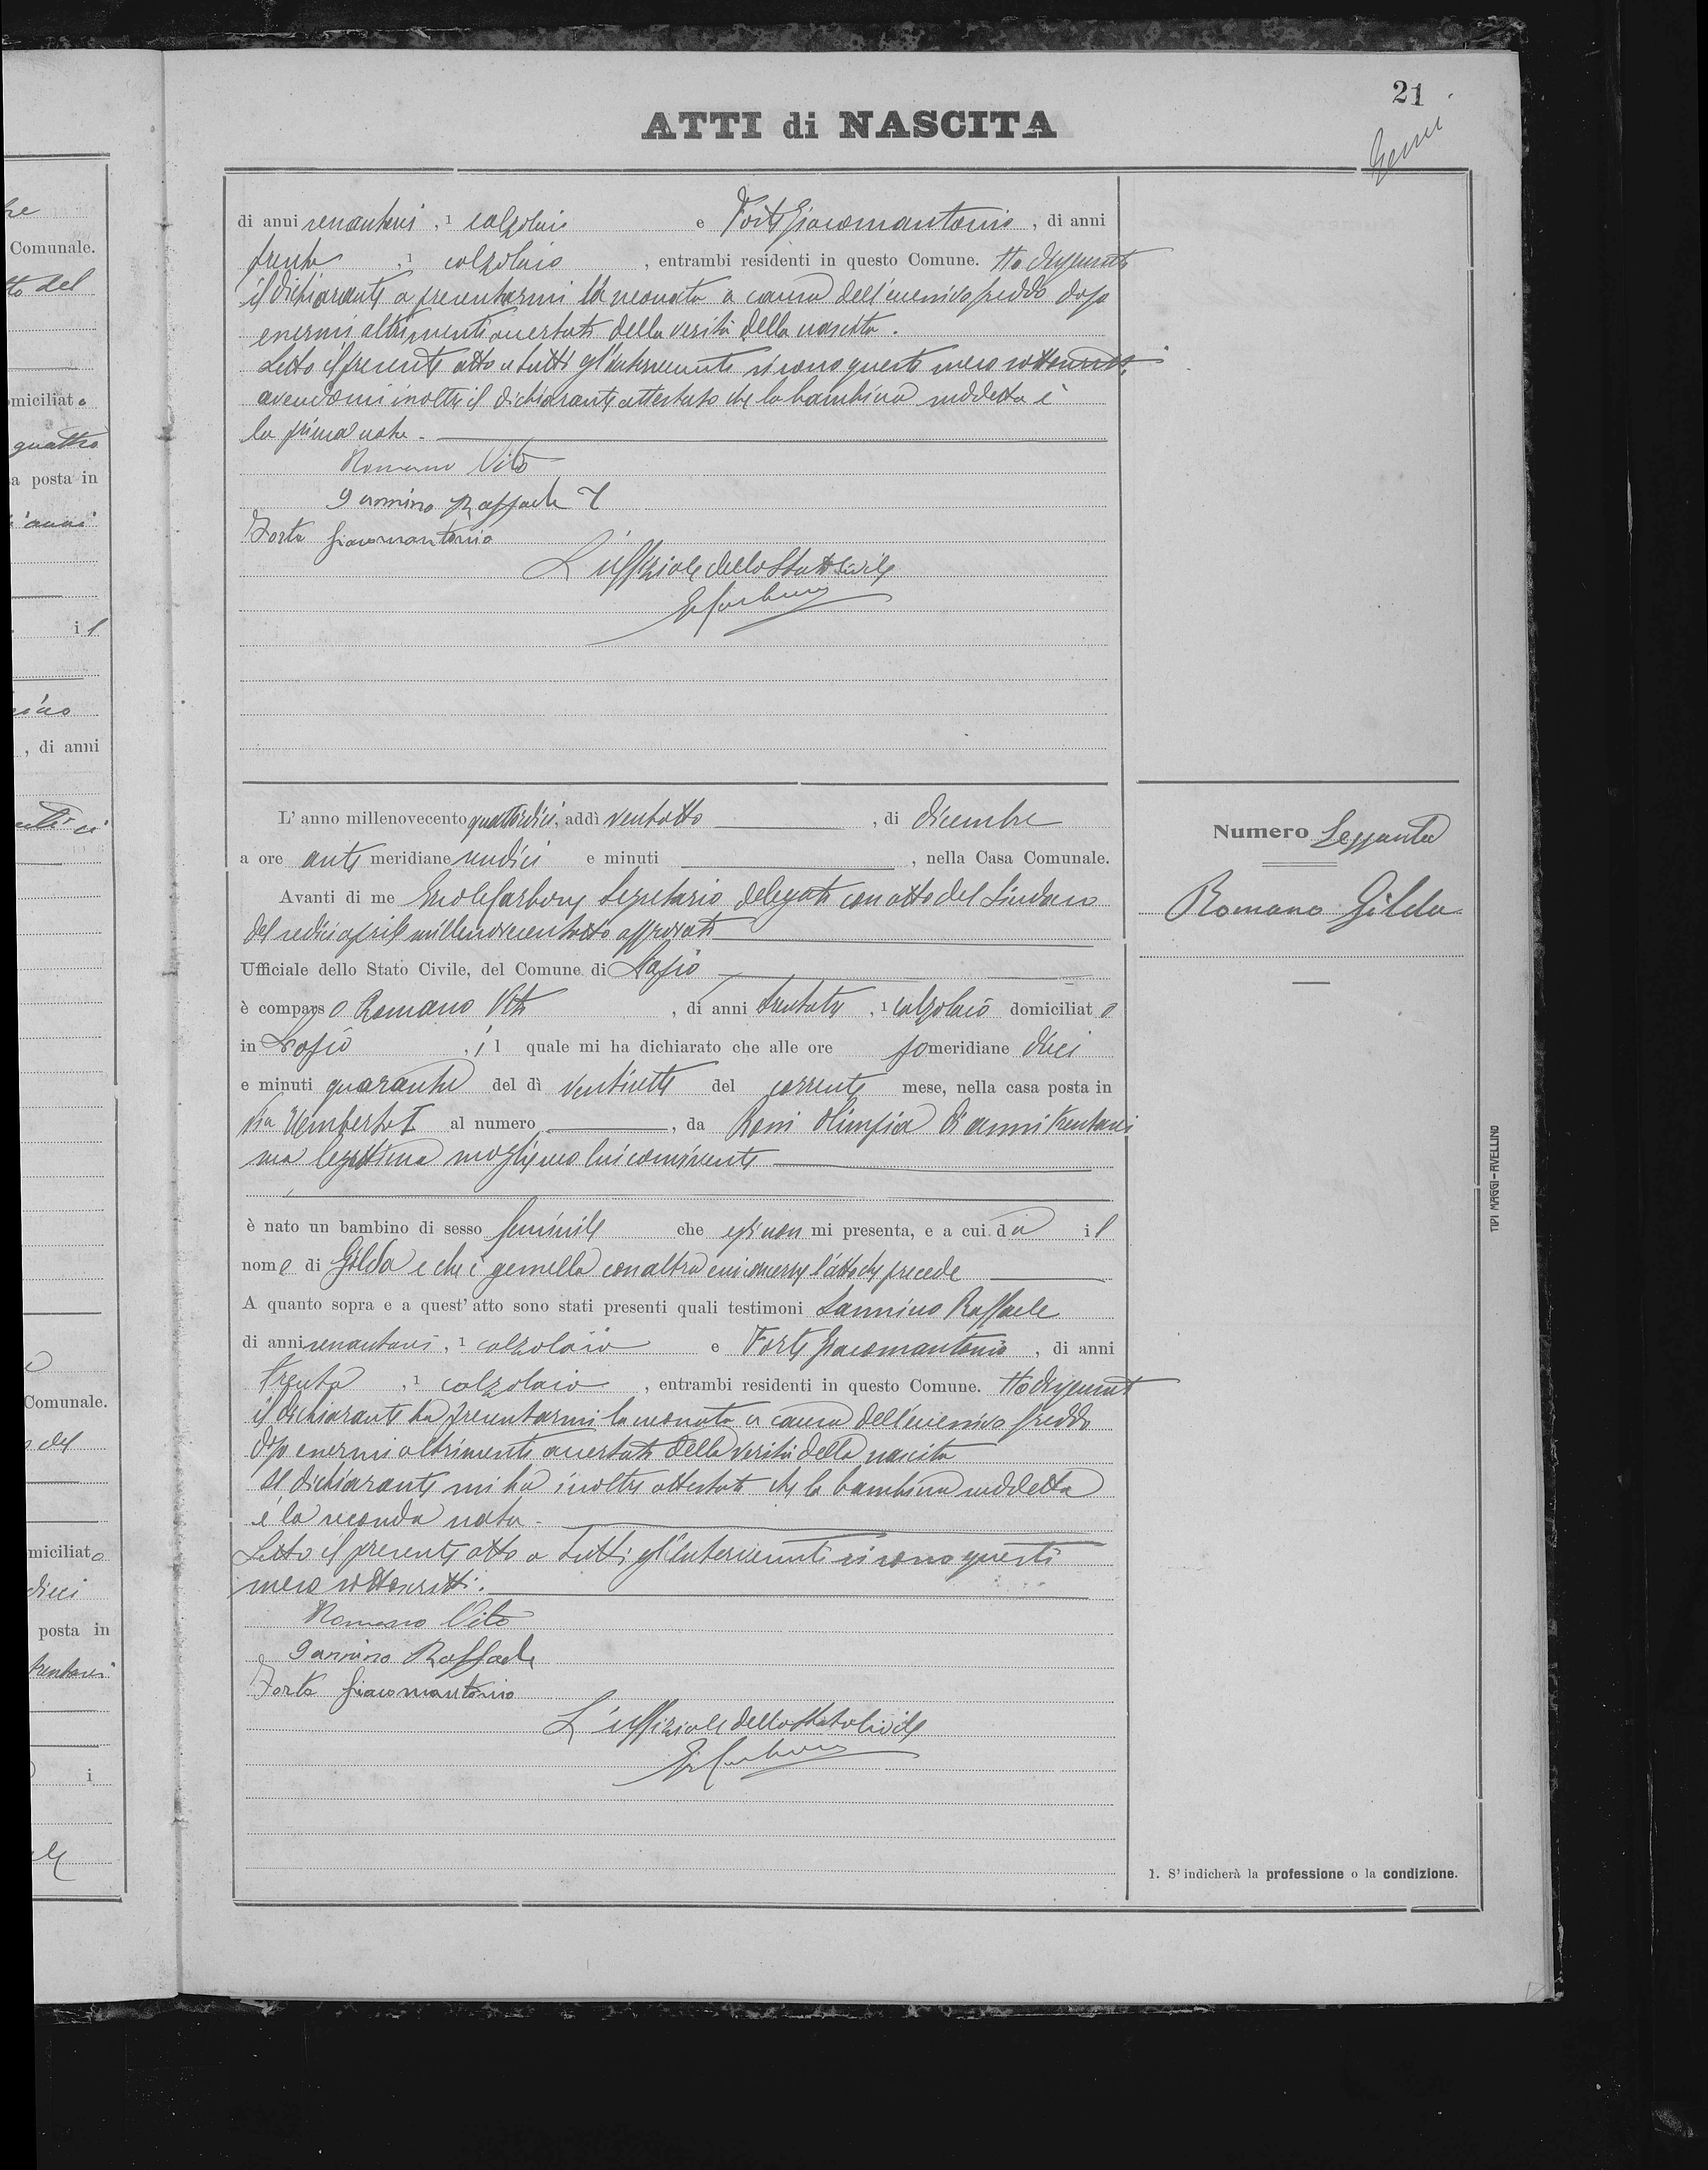 21
ATTI di NASCITA
di anni sessantasei, 1 calzolaio e Forte Giacomantonio, di anni
trenta, 1 calzolaio, entrambi residenti in questo Comune. Ho dispensato
il dichiarante a presentarmi la neonata a causa dell'eccessivo freddo dopo
essermi altrimenti accertato della verità della nascita.
Letto il presente atto a tutti gl'intervenuti si sono questi meco sottoscritti,
avendomi inoltre il dichiarante attestato che la bambina suddetta è
la prima nata.
Romano Vito
Iannino Raffaele
Forte Giacomantonio
L'uffiziale dello Stato Civile
L'anno millenovecento quattordici, addì ventotto, di dicembre
a ore anti meridiane undici e minuti, nella Casa Comunale.
Avanti di me Segretario delegato con atto del Sindaco
del sedici aprile millenovecentotto approvato
Ufficiale dello Stato Civile, del Comune di Lapio
è comparso Romano Vito, di anni trentatre, 1 calzolaio domiciliato
in Lapio, il quale mi ha dichiarato che alle ore pomeridiane dieci
e minuti quaranta del dì ventisette del corrente mese, nella casa posta in
Via Umberto I al numero, da Olimpia di anni trentasei
sua legittima moglie seco lui convivente
è nato un bambino di sesso feminile che egli non mi presenta, e a cui dà il
nome di Gilda e che è gemella con altra cui concerne l'atto che precede
A quanto sopra e a quest'atto sono stati presenti quali testimoni Iannino Raffaele
di anni sessantasei, 1 calzolaio e Forte Giacomantonio, di anni
trenta, 1 calzolaio, entrambi residenti in questo Comune. Ho dispensato
il dichiarante ha presentarmi la neonata a causa dell'eccessivo freddo
dopo essermi altrimenti accertato della verità della nascita
Il dichiarante mi ha inoltre attestato che la bambina suddetta
è la seconda nata.
Letto il presente atto a tutti gl'intervenuti si sono questi
meco sottoscritti.
Romano Vito
Iannino Raffaele
Forte Giacomantonio
L'uffiziale dello Stato Civile
Numero Sessanta
Romano Gilda
1. S'indicherà la professione o la condizione.
TIPI MAGGI-AVELLINO